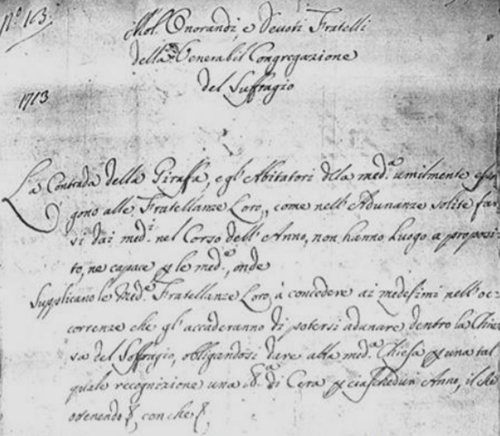 N.° 163.
Mol. Onorandi, e Devoti Fratelli
della Venerabil Congregazione
del Suffragio
1713
La Contrada della Giraffa, e gl' Abitatori dela med.ª umilmente espo-
gono alle Fratellanze Loro, come nell' Adunanze solite far-
si dai med.i nel Corso dell' Anno, non hanno luogo a proposi-
to, ne capace p le med.e, onde
Supplicano le Med.e Fratellanze Loro à concedere ai medesimi nell' oc-
correnze che gl' accaderanno di potersi adunare dentro la Chie-
sa del Soffragio, obligandosi dare alla med.ª Chiesa p una tal
quale recognizione una di Cera p ciaschedun Anno, il
con che